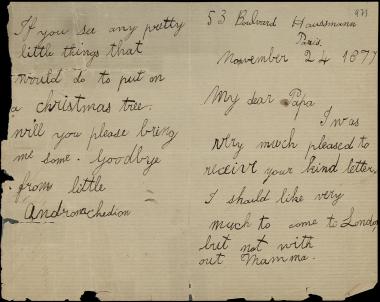 973
53 Boulvard Haussmann
Paris.
November 24 1877
My dear Papa
I was
very much pleased to
receive your kind letter,
I should like very
much to come to London
but not with
out Mamma.
If you see any pretty
little things that
would do to put on
a christmas tree.
will you please bring
me some. Goodbye
from little
Andronachedion